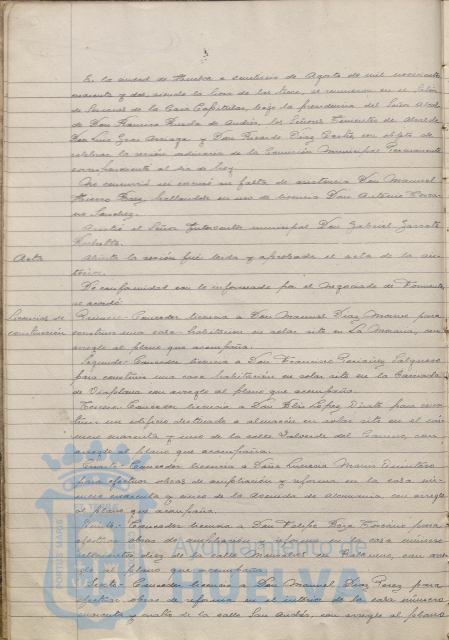 En la ciudad de Huelva a veintiuno de Agosto de mil novecientos
cuarenta y dos, siendo la hora de las trece, se reunieron en el Salón
de Sesiones de la Casa Capitular, bajo la presidencia del Señor Alcal-
de Don Francisco de Andrés, los Señores Tenientes de Alcalde
Don Luis y Don Ricardo Díaz con objeto de
celebrar la sesión ordinaria de la Comisión Municipal Permanente
correspondiente al día de hoy
No concurrió ni excusó su falta de asistencia Don Manuel
hallándose en uso de licencia Don Antonio
Asistió el Señor Interventor municipal Don Gabriel Zarrate
Acta Abierta la sesión fué leida y aprobada el acta de la an-
terior.
De conformidad con lo informado por el Negociado de Fomento,
se acordó:
Licencias de Primero- Conceder licencia a Don Manuel Díaz para
construcción construir una casa habitación en solar sito en La con
arreglo al plano que acompaña.
Segundo- Conceder licencia a Don Francisco González Salguero
para construir una casa habitación en solar sito en la Barriada
de Viaplana con arreglo al plano que acompaña.
Tercero- Conceder licencia a Don López para cons-
truir un edificio destinado a almacén en solar sito en el nú-
mero cuarenta y uno de la calle Valverde del Camino, con
arreglo al plano que acompaña.
Cuarto- Conceder licencia a Doña Luciana
para efectuar obras de ampliación y reforma en la casa nú-
mero cuarenta y cinco de la Avenida de Alemania, con arreglo
al plano que acompaña.
Quinto- Conceder licencia a Don Felipe para
efectuar obras de ampliación y reforma en la casa número
diez de la calle con arre-
glo al plano que acompaña.
Sexto- Conceder licencia a Don Manuel Díaz Perez para
efectuar obras de reforma en el interior de la casa número
cuarenta y cuatro de la calle San Andrés, con arreglo al plano
PORTUS MARIS
Ayuntamiento de
HUELVA